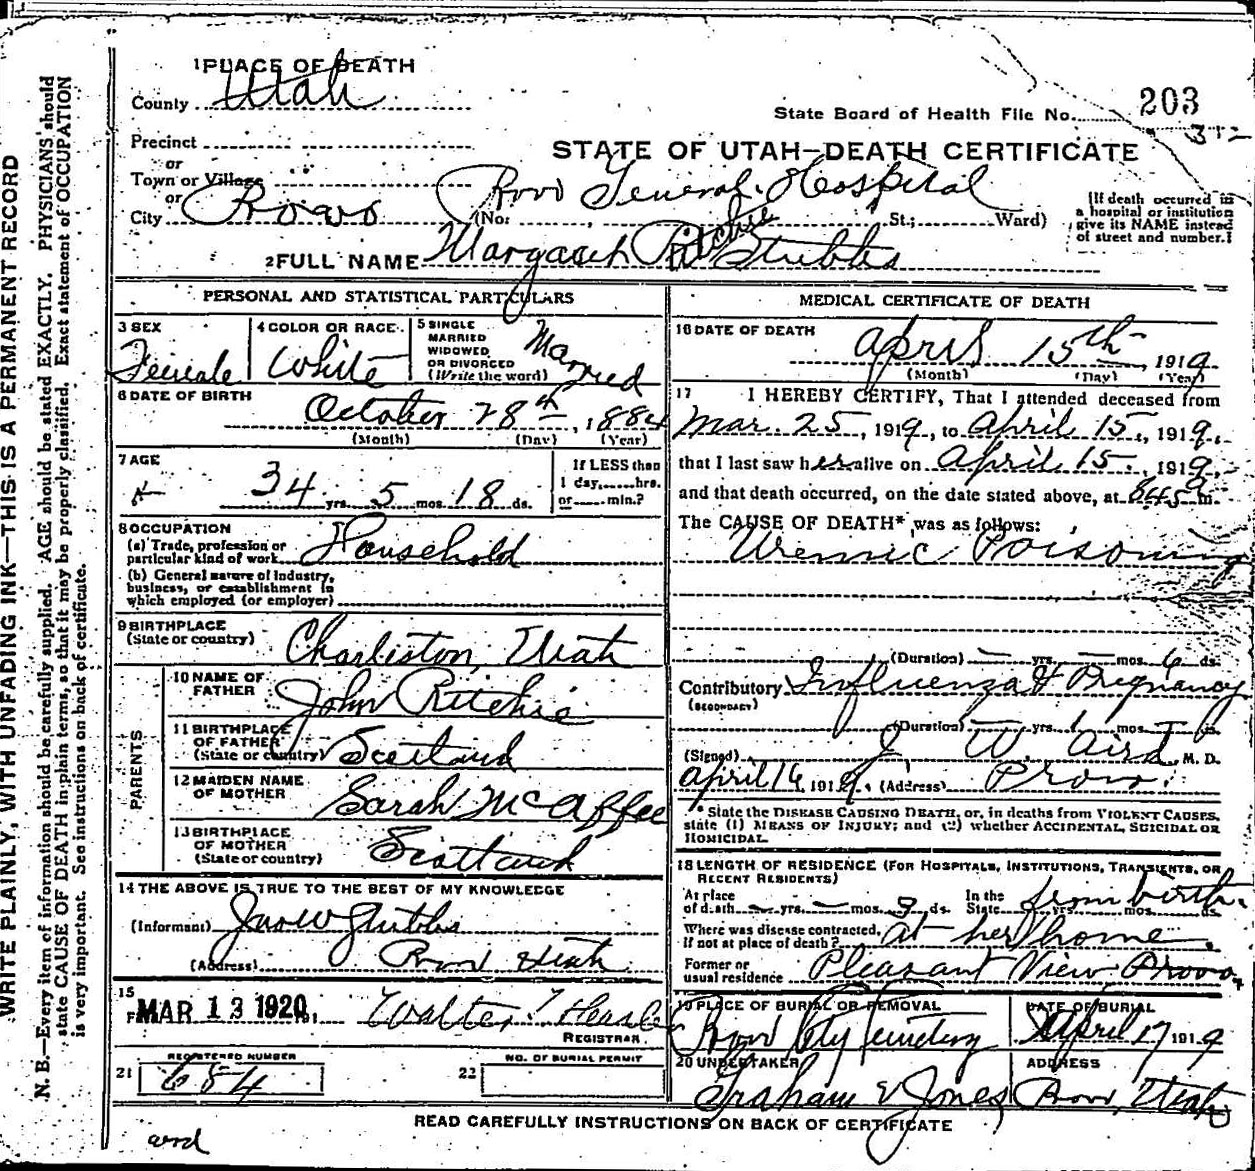 WRITE PLAINLY, WITH UNFADING INK—THIS IS A PERMANENT RECORD
N. B.—Every item of information should be carefully supplied. AGE should be stated EXACTLY. PHYSICIANS should
state CAUSE OF DEATH in plain terms, so that it may be properly classified. Exact statement of OCCUPATION
is very important. See instructions on back of certificate.
1 PLACE OF DEATH
County Utah
State Board of Health File No. 203
312
Precinct
or
Town or Village
or
City Provo
STATE OF UTAH—DEATH CERTIFICATE
Provo General Hospital
(No. St.; Ward)
(If death occurred in
a hospital or institution
give its NAME instead
of street and number.)
2 FULL NAME Margaret Ritchie Stubbs
PERSONAL AND STATISTICAL PARTICULARS
3 SEX
Female
4 COLOR OR RACE
White
5 SINGLE
MARRIED
WIDOWED
OR DIVORCED
(Write the word)
Married
6 DATE OF BIRTH
October 28th, 1884
(Month) (Day) (Year)
7 AGE
34 yrs. 5 mos. 18 ds.
If LESS than
1 day, hrs.
or min.?
8 OCCUPATION
(a) Trade, profession or
particular kind of work Household
(b) General nature of Industry,
business, or establishment in
which employed (or employer)
9 BIRTHPLACE
(State or country) Charleston, Utah
PARENTS
10 NAME OF
FATHER John Ritchie
11 BIRTHPLACE
OF FATHER
(State or country) Scotland
12 MAIDEN NAME
OF MOTHER Sarah McAffee
13 BIRTHPLACE
OF MOTHER
(State or country) Scotland
14 THE ABOVE IS TRUE TO THE BEST OF MY KNOWLEDGE
(Informant) Stubbs
(Address) Provo Utah
15
MAR 13 1920 191
Walter T
REGISTRAR
REGISTERED NUMBER
21 684
NO. OF BURIAL PERMIT
22
MEDICAL CERTIFICATE OF DEATH
16 DATE OF DEATH
April 15th, 1919
(Month) (Day) (Year)
17 I HEREBY CERTIFY, That I attended deceased from
Mar. 25, 1919, to April 15, 1919,
that I last saw her alive on April 15, 1919
and that death occurred, on the date stated above, at 845 P m.
The CAUSE OF DEATH* was as follows:
Uremic Poisoning
(Duration) — yrs. — mos. 6 ds.
Contributory Influenza & Pregnancy
(SECONDARY)
(Duration) — yrs. 1 mos. ds.
(Signed) J. W. Aird, M. D.
April 16 1919. (Address) Provo.
* State the DISEASE CAUSING DEATH, or, in deaths from VIOLENT CAUSES,
state (1) MEANS OF INJURY; and (2) whether ACCIDENTAL, SUICIDAL OR
HOMICIDAL.
18 LENGTH OF RESIDENCE (FOR HOSPITALS, INSTITUTIONS, TRANSIENTS, OR
RECENT RESIDENTS)
At place
of death — yrs. — mos. 9 ds. In the
State from birth yrs. mos. ds.
Where was disease contracted,
if not at place of death? at her home.
Former or
usual residence Pleasant View Provo,
19 PLACE OF BURIAL OR REMOVAL
Provo City Cemetery
DATE OF BURIAL
April 17 1919
20 UNDERTAKER
Graham & Jones
ADDRESS
Provo, Utah
READ CAREFULLY INSTRUCTIONS ON BACK OF CERTIFICATE